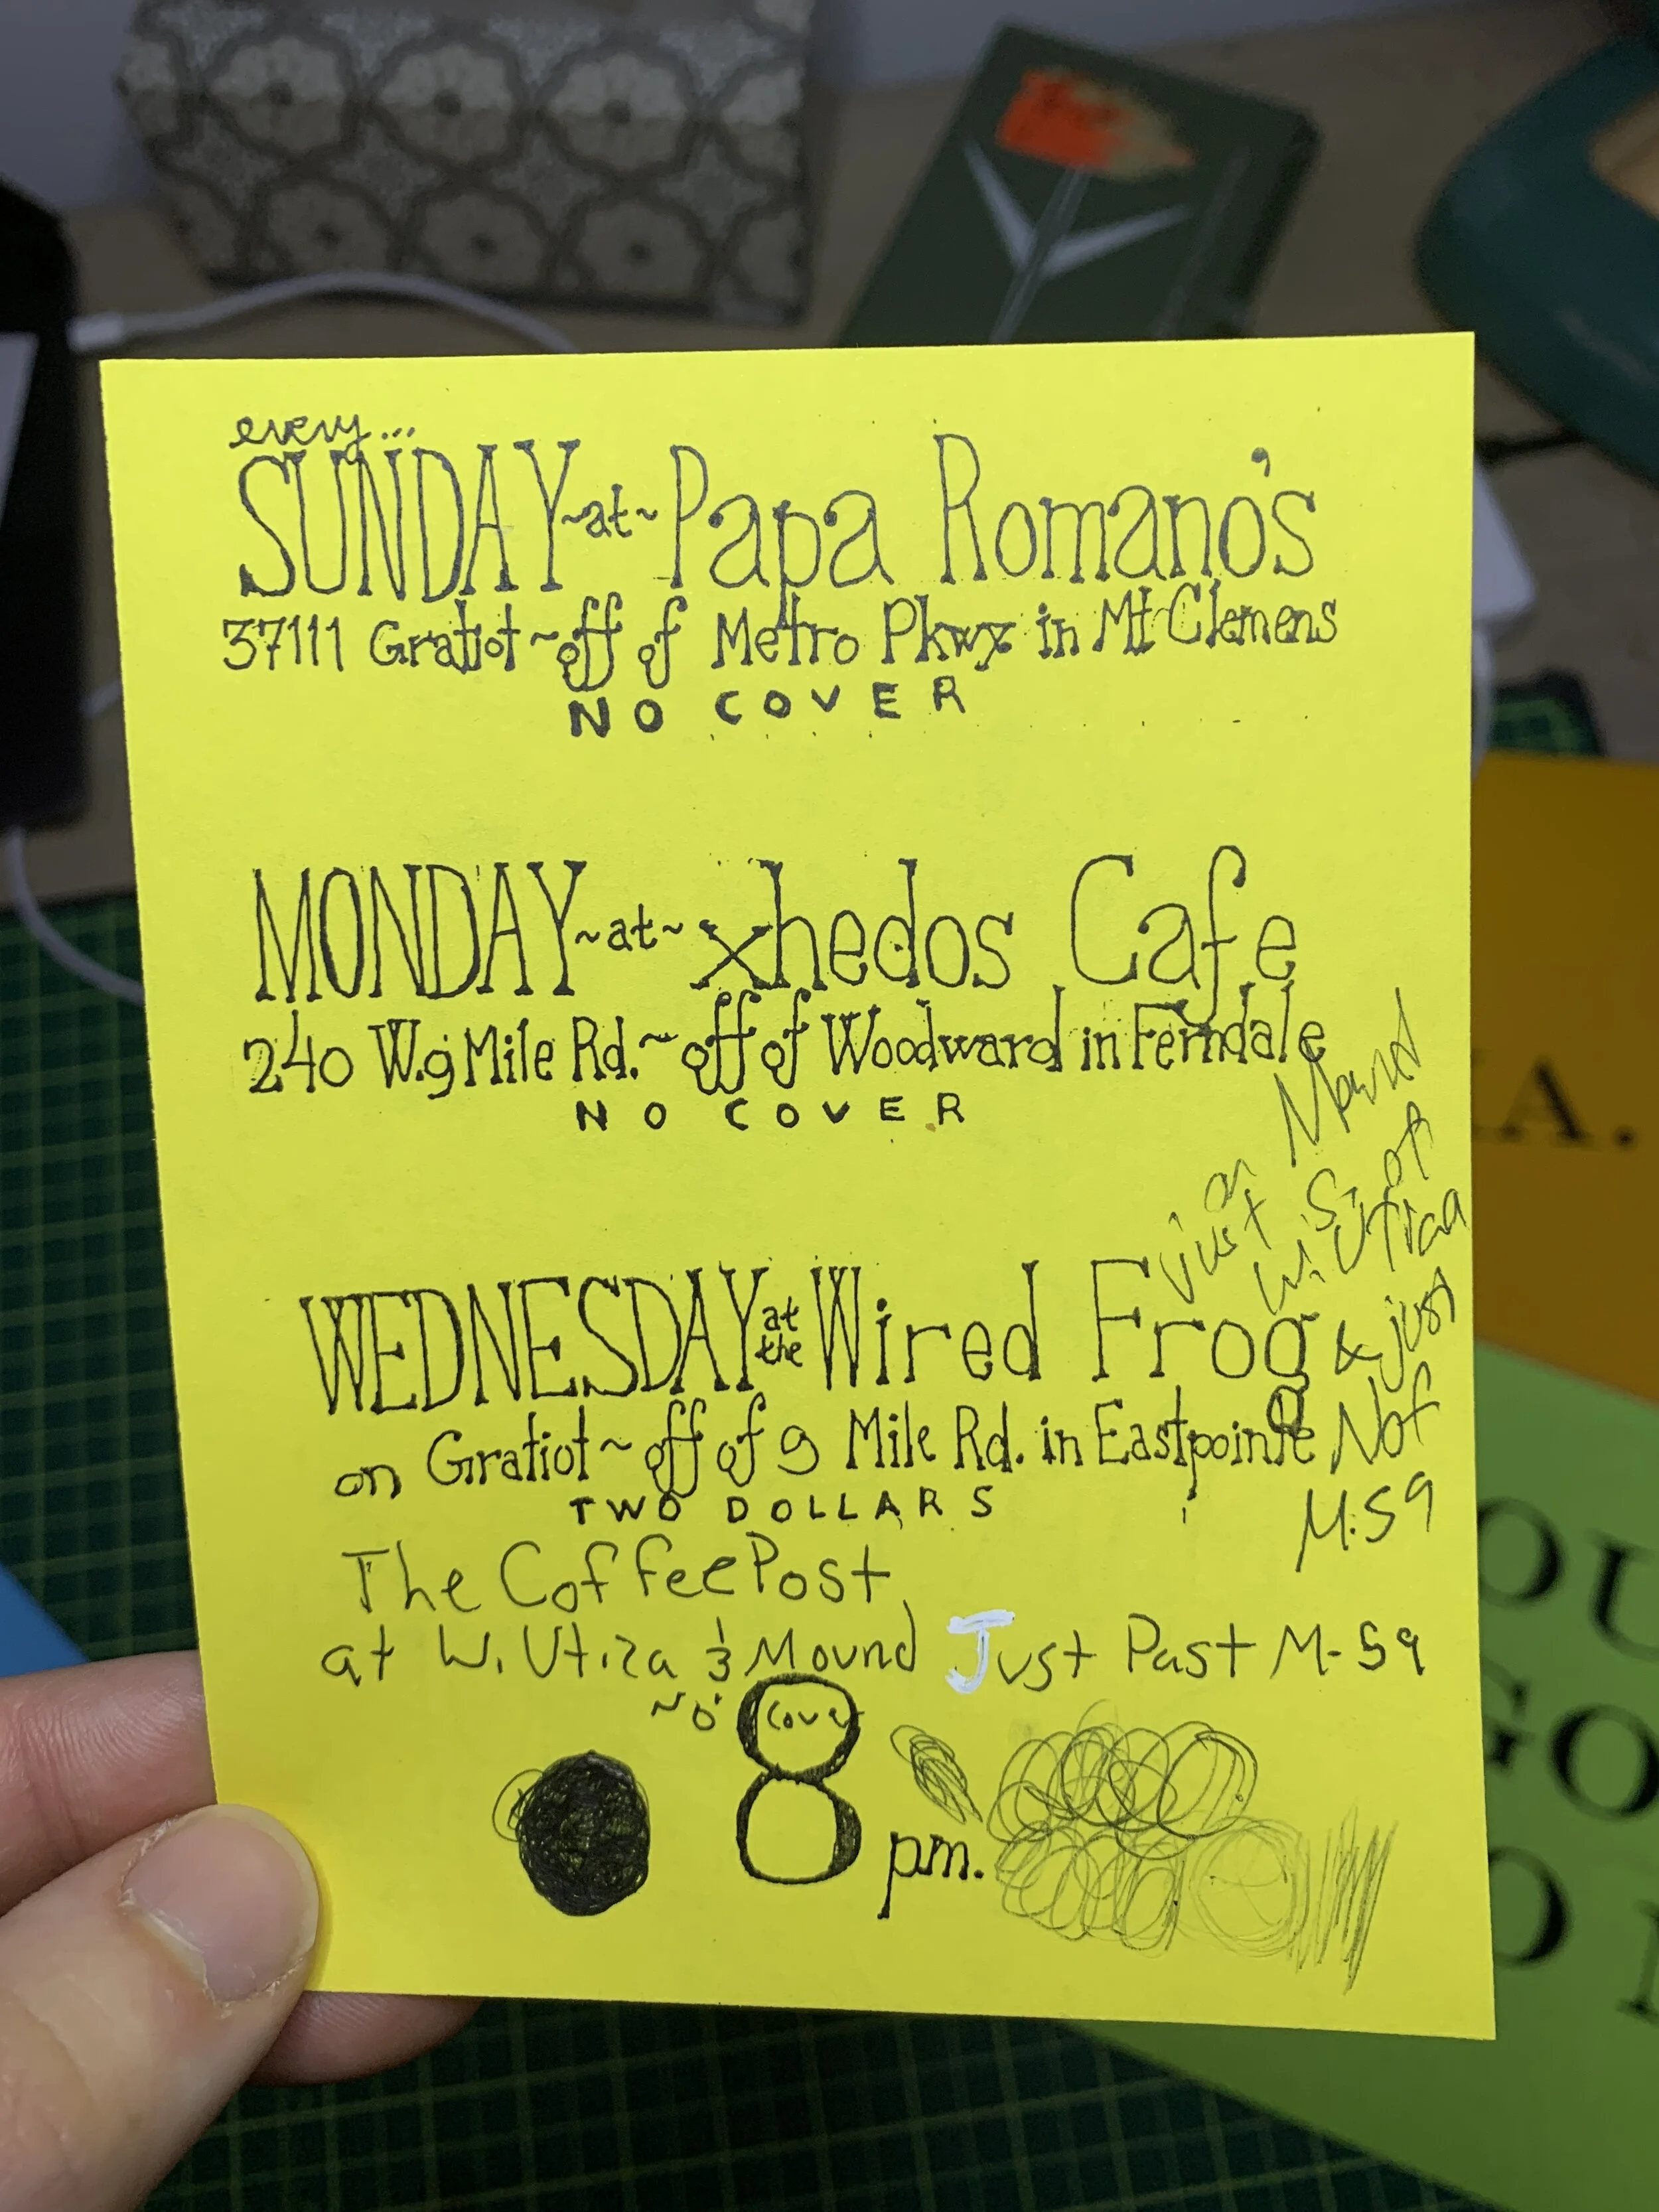 every...
SUNDAY ~at~ Papa Romano's
37111 Gratiot ~ off of Metro Pkwy in Mt Clemens
NO COVER
MONDAY ~at~ xhedos Cafe
240 W. 9 Mile Rd. ~ off of Woodward in Ferndale
NO COVER
WEDNESDAY at the Wired Frog
on Gratiot ~ off of 9 Mile Rd. in Eastpointe
TWO DOLLARS
just on Mound
S. of
W. Utica
& just
Not
M-59
The Coffee Post
at W. Utica & Mound Just Past M-59
No Cover
8 pm.
A.
OU
GO
O